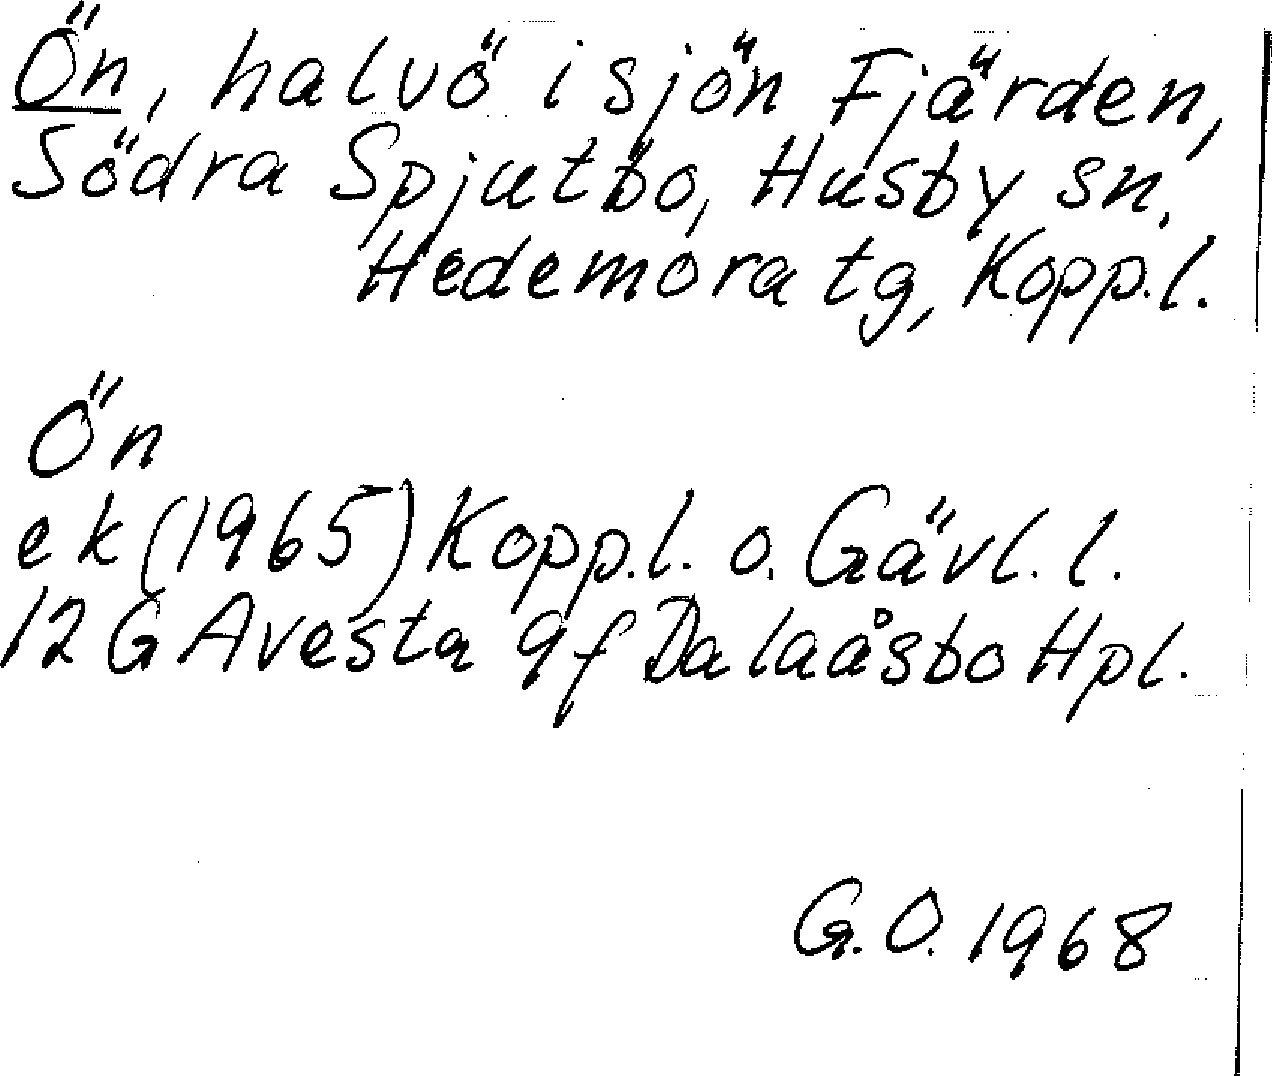 Ön, halvö i sjön Fjärden,
Södra Spjutbo, Husby sn,
Hedemora tg, Kopp.l.
Ön
ek (1965) Kopp.l. o. Gävl. l.
12 G Avesta 9f Dalaåsbo Hpl.
G.O. 1968